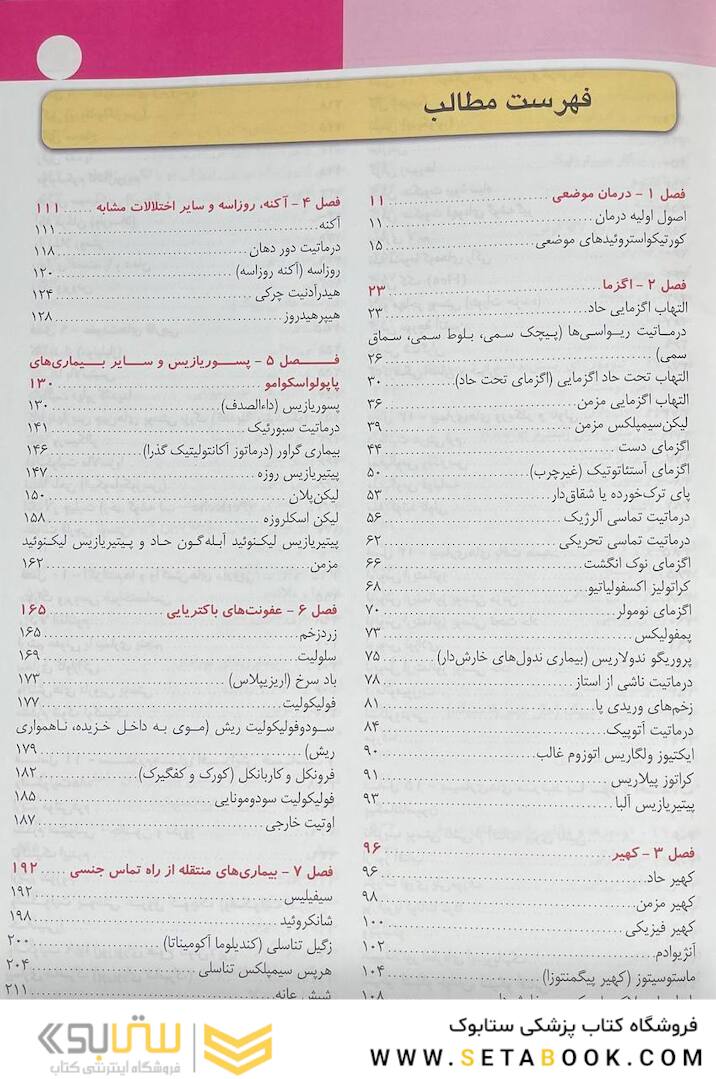 فهرست مطالب
فصل ۱ - درمان موضعی ۱۱
اصول اولیه درمان ۱۱
کورتیکواستروئیدهای موضعی ۱۵
فصل ۲ - اگزما ۲۳
التهاب اگزمایی حاد ۲۳
درماتیت ریواسی‌ها (پیچک سمی، بلوط سمی، سماق
سمی) ۲۶
التهاب تحت حاد اگزمایی (اگزمای تحت حاد) ۳۰
التهاب اگزمایی مزمن ۳۶
لیکن‌سیمپلکس مزمن ۳۹
اگزمای دست ۴۴
اگزمای آستئاتوتیک (غیرچرب) ۵۰
پای ترک‌خورده یا شقاق‌دار ۵۳
درماتیت تماسی آلرژیک ۵۶
درماتیت تماسی تحریکی ۶۲
اگزمای نوک انگشت ۶۶
کراتولیز اکسفولیاتیو ۶۸
اگزمای نومولر ۷۰
پمفولیکس ۷۳
پروریگو ندولاریس (بیماری ندول‌های خارش‌دار) ۷۵
درماتیت ناشی از استاز ۷۸
زخم‌های وریدی پا ۸۱
درماتیت آتوپیک ۸۴
ایکتیوز ولگاریس اتوزوم غالب ۹۰
کراتوز پیلاریس ۹۱
پیتیریازیس آلبا ۹۳
فصل ۳ - کهیر ۹۶
کهیر حاد ۹۶
کهیر مزمن ۹۸
کهیر فیزیکی ۱۰۰
آنژیوادم ۱۰۲
ماستوسیتوز (کهیر پیگمنتوزا) ۱۰۴
فصل ۴ - آکنه، روزاسه و سایر اختلالات مشابه ۱۱۱
آکنه ۱۱۱
درماتیت دور دهان ۱۱۸
روزاسه (آکنه روزاسه) ۱۲۰
هیدرآدنیت چرکی ۱۲۴
هیپرهیدروز ۱۲۸
فصل ۵ - پسوریازیس و سایر بیماری‌های
پاپولواسکوامو ۱۳۰
پسوریازیس (داءالصدف) ۱۳۰
درماتیت سبورئیک ۱۴۱
بیماری گراور (درماتوز آکانتولیتیک گذرا) ۱۴۶
پیتیریازیس روزه ۱۴۷
لیکن‌پلان ۱۵۰
لیکن اسکلروزه ۱۵۸
پیتیریازیس لیکنوئید آبله‌گون حاد و پیتیریازیس لیکنوئید
مزمن ۱۶۲
فصل ۶ - عفونت‌های باکتریایی ۱۶۵
زردزخم ۱۶۵
سلولیت ۱۶۹
باد سرخ (اریزیپلاس) ۱۷۳
فولیکولیت ۱۷۷
سودوفولیکولیت ریش (موی به داخل خزیده، ناهمواری
ریش) ۱۷۹
فرونکل و کاربانکل (کورک و کفگیرک) ۱۸۲
فولیکولیت سودومونایی ۱۸۵
اوتیت خارجی ۱۸۷
فصل ۷ - بیماری‌های منتقله از راه تماس جنسی ۱۹۲
سیفیلیس ۱۹۲
شانکروئید ۱۹۸
زگیل تناسلی (کندیلوما آکومیناتا) ۲۰۰
هرپس سیمپلکس تناسلی ۲۰۴
شپش عانه ۲۱۱
فروشگاه کتاب پزشکی ستابوک
WWW.SETABOOK.COM
ستابوک
فروشگاه اینترنتی کتاب